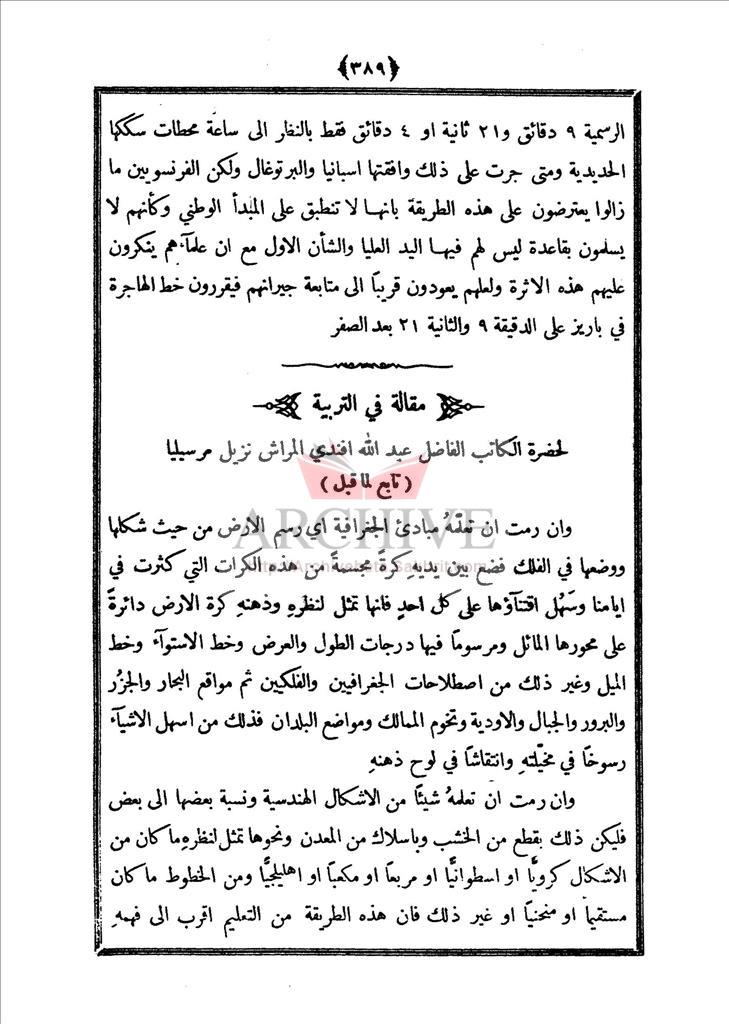 ﴿٣٨٩﴾
الرسمية ٩ دقائق و٢١ ثانية او ٤ دقائق فقط بالنظر الى ساعة محطات سككها
الحديدية ومتى جرت على ذلك وافقتها اسبانيا والبرتوغال ولكن الفرنسويين ما
زالوا يعترضون على هذه الطريقة بانهـا لا تنطبق على المبدأ الوطني وكأنهم لا
يسلمون بقاعدة ليس لهم فيهـا اليد العليا والشأن الاول مع ان علمآءهم ينكرون
عليهم هذه الاثرة ولعلهم يعودون قريبًا الى متابعة جيرانهم فيقررون خط الهاجرة
في باريز على الدقيقة ٩ والثانية ٢١ بعد الصفر
مقالة في التربية
لحضرة الكاتب الفاضل عبد الله افندي المراش نزيل مرسيليا
( تابع لما قبل )
وان رمت ان تعلّمهُ مبادئ الجغرافية اي رسم الارض من حيث شكلها
ووضعها في الفلك فضع بين يديهِ كرةً مجسمةً من هذه الكرات التي كثرت في
ايامنا وسَهُل اقتنآؤها على كل احدٍ فانها تمثل لنظرهِ وذهنهِ كرة الارض دائرةً
على محورها المائل ومرسومًا فيها درجات الطول والعرض وخط الاستوآء وخط
الميل وغير ذلك من اصطلاحات الجغرافيين والفلكيين ثم مواقع البحار والجزُر
والبرور والجبال والاودية وتخوم الممالك ومواضع البلدان فذلك من اسهل الاشيآء
رسوخًا في مخيّلتهِ وانتقاشًا في لوح ذهنهِ
وان رمت ان تعلمهُ شيئًا من الاشكال الهندسية ونسبة بعضها الى بعض
فليكن ذلك بقطع من الخشب وباسلاك من المعدن ونحوها تمثل لنظرهِ ما كان من
الاشكال كرويًّا او اسطوانيًّا او مربعًا او مكعبًا او اهليلجيًّا ومن الخطوط ما كان
مستقيمًا او منحنيًا او غير ذلك فان هذه الطريقة من التعليم اقرب الى فهمهِ
ARCHIVE